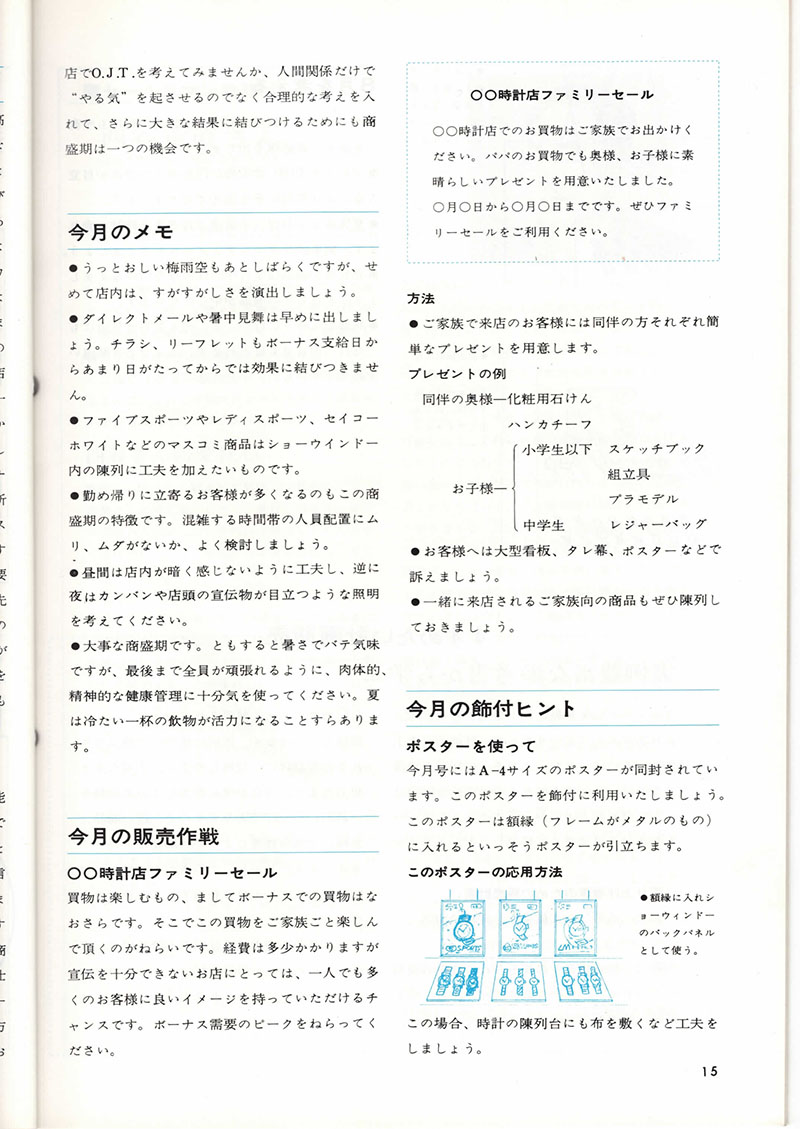 店でO.J.T.を考えてみませんか、人間関係だけで
“やる気”を起させるのでなく合理的な考えを入
れて、さらに大きな結果に結びつけるためにも商
盛期は一つの機会です。
今月のメモ
●うっとおしい梅雨空もあとしばらくですが、せ
めて店内は、すがすがしさを演出しましょう。
●ダイレクトメールや暑中見舞は早めに出しまし
ょう。チラシ、リーフレットもボーナス支給日か
らあまり日がたってからでは効果に結びつきませ
ん。
●ファイブスポーツやレディスポーツ、セイコー
ホワイトなどのマスコミ商品はショーウインドー
内の陳列に工夫を加えたいものです。
●勤め帰りに立寄るお客様が多くなるのもこの商
盛期の特徴です。混雑する時間帯の人員配置にム
リ、ムダがないか、よく検討しましょう。
●昼間は店内が暗く感じないように工夫し、逆に
夜はカンバンや店頭の宣伝物が目立つような照明
を考えてください。
●大事な商盛期です。ともすると暑さでバテ気味
ですが、最後まで全員が頑張れるように、肉体的、
精神的な健康管理に十分気を使ってください。夏
は冷たい一杯の飲物が活力になることすらありま
す。
今月の販売作戦
〇〇時計店ファミリーセール
買物は楽しむもの、ましてボーナスでの買物はな
おさらです。そこでこの買物をご家族ごと楽しん
で頂くのがねらいです。経費は多少かかりますが
宣伝を十分できないお店にとっては、一人でも多
くのお客様に良いイメージを持っていただけるチ
ャンスです。ボーナス需要のピークをねらってく
ださい。
〇〇時計店ファミリーセール
〇〇時計店でのお買物はご家族でお出かけく
ださい。パパのお買物でも奥様、お子様に素
晴らしいプレゼントを用意いたしました。
〇月〇日から〇月〇日までです。ぜひファミ
リーセールをご利用ください。
方法
●ご家族で来店のお客様には同伴の方それぞれ簡
単なプレゼントを用意します。
プレゼントの例
同伴の奥様—化粧用石けん
ハンカチーフ
お子様—
小学生以下 スケッチブック
組立具
プラモデル
中学生 レジャーバッグ
●お客様へは大型看板、タレ幕、ポスターなどで
訴えましょう。
●一緒に来店されるご家族向の商品もぜひ陳列し
ておきましょう。
今月の飾付ヒント
ポスターを使って
今月号にはA-4サイズのポスターが同封されてい
ます。このポスターを飾付に利用いたしましょう。
このポスターは額縁（フレームがメタルのもの）
に入れるといっそうポスターが引立ちます。
このポスターの応用方法
●額縁に入れシ
ョーウィンドー
のバックパネル
として使う。
この場合、時計の陳列台にも布を敷くなど工夫を
しましょう。
15